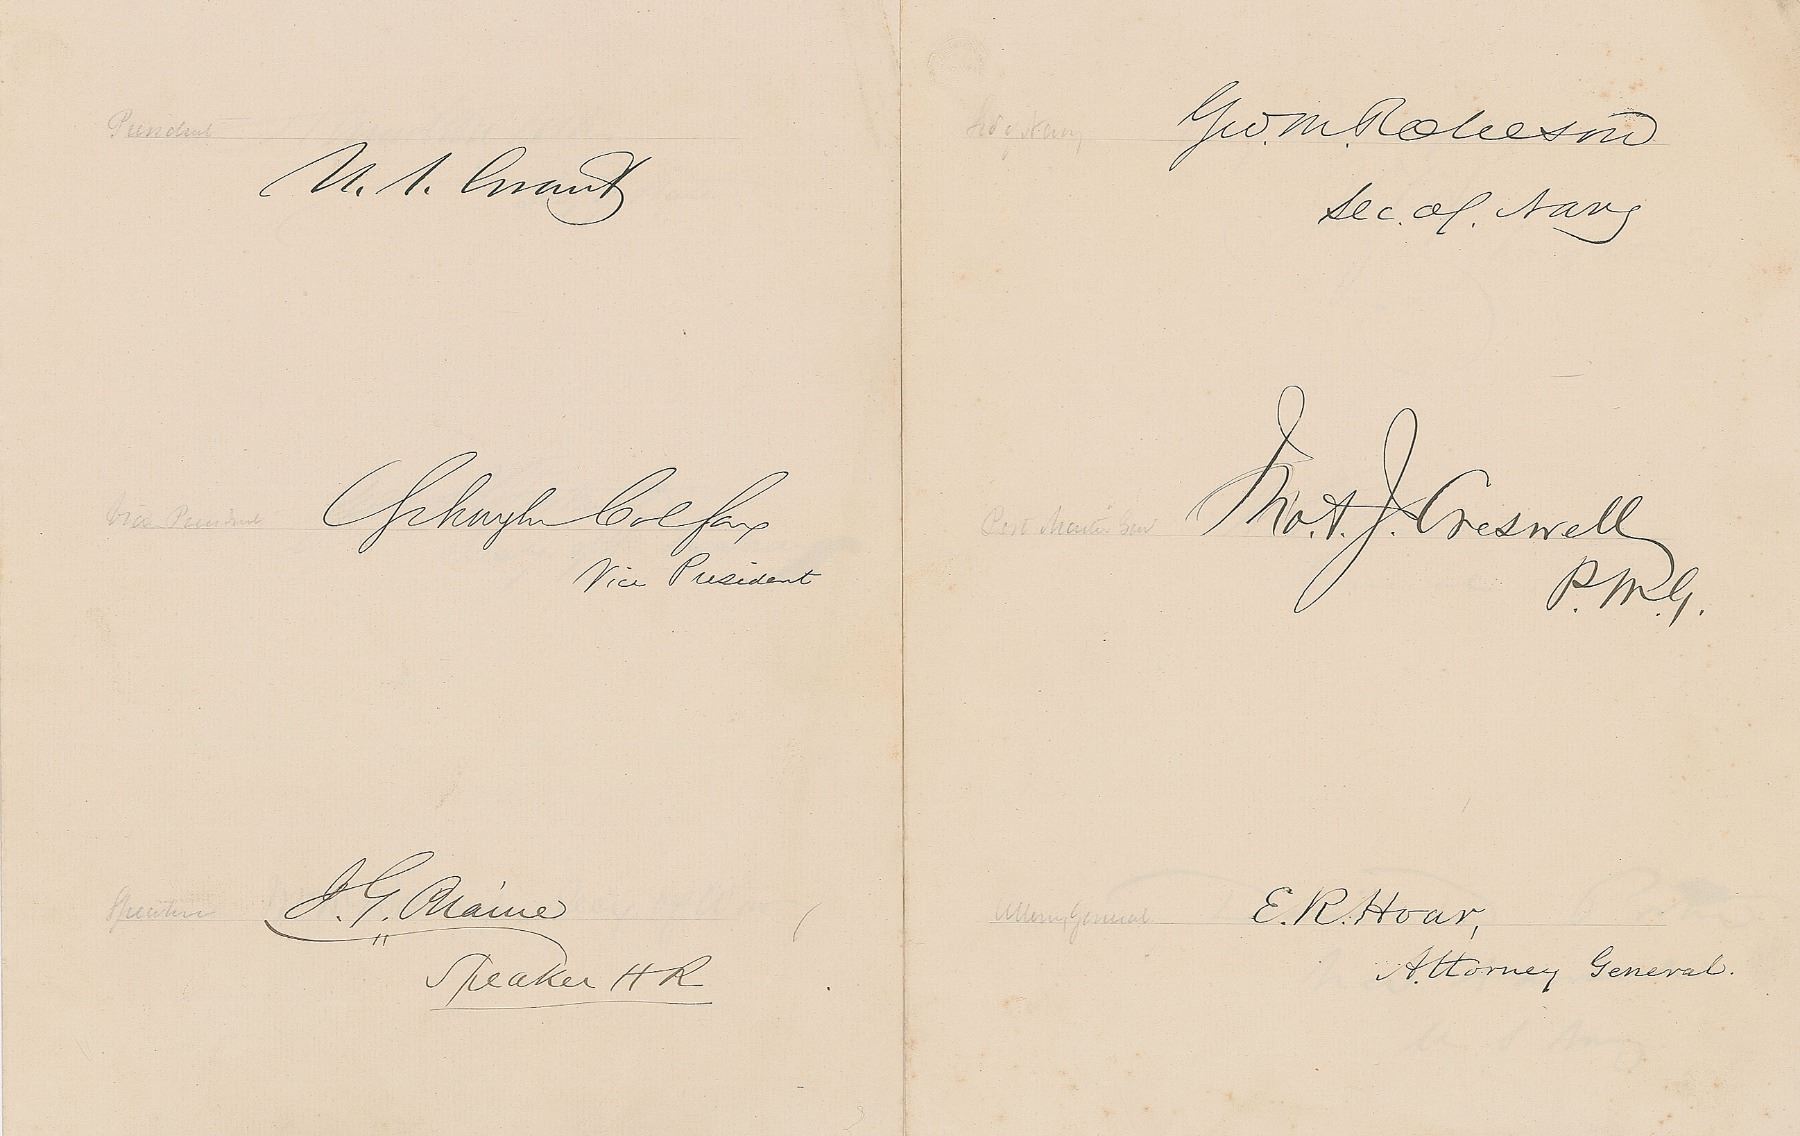 President
U. S. Grant
Vice President
Schuyler Colfax
Vice President
Speaker
J. G. Blaine
Speaker H R
Sec of Navy
Geo. M. Robeson
Sec. of. Navy
Post Master Gen
Jno. A. J. Creswell
P. M. G.
Attorney General
E. R. Hoar,
Attorney General.
U S Army